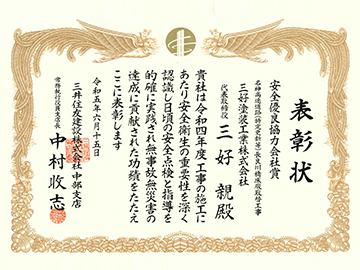 表彰状
安全優良協力会社賞
名神高速道路(特定更新等)長良川橋床版取替工事
三好塗装工業株式会社
代表取締役 三好親殿
貴社は令和四年度工事の施工に
あたり安全衛生の重要性を深く
認識し日頃の安全点検と指導を
的確に実践され無事故無災害の
達成に貢献された功績をたたえ
ここに表彰します
令和五年六月十五日
三井住友建設株式会社中部支店
常務執行役員支店長 中村收志